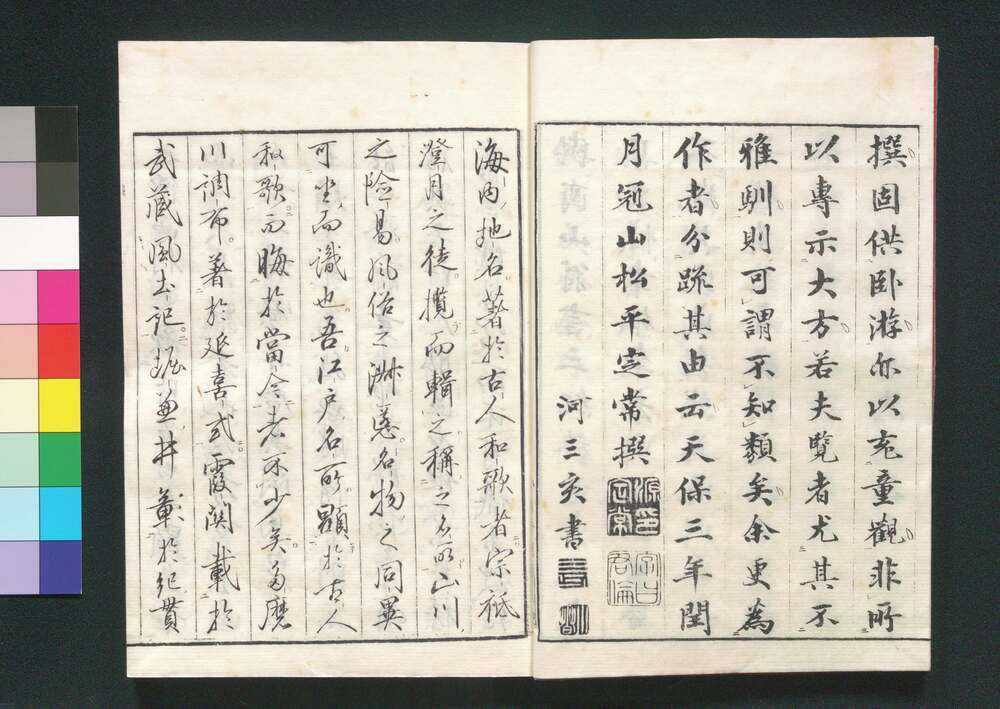 撰固供臥游亦以充童觀非所
以專示大方若夫覽者尤其不
雅馴則可謂不知類矣余更為
作者分疏其由云天保三年閏
月冠山松平定常撰
源印定常
河三亥書
海内地名著於古人和歌者宗祇
澄月之徒攬而輯之稱之名所山川
之險易風俗之淋慝名物之同異
可坐而識也吾江戸名所顯於古人
和歌而晦於當今者不少矣多麼
川調布著於延喜式霞関載於
武蔵風土記堀兼井彰於紀貫